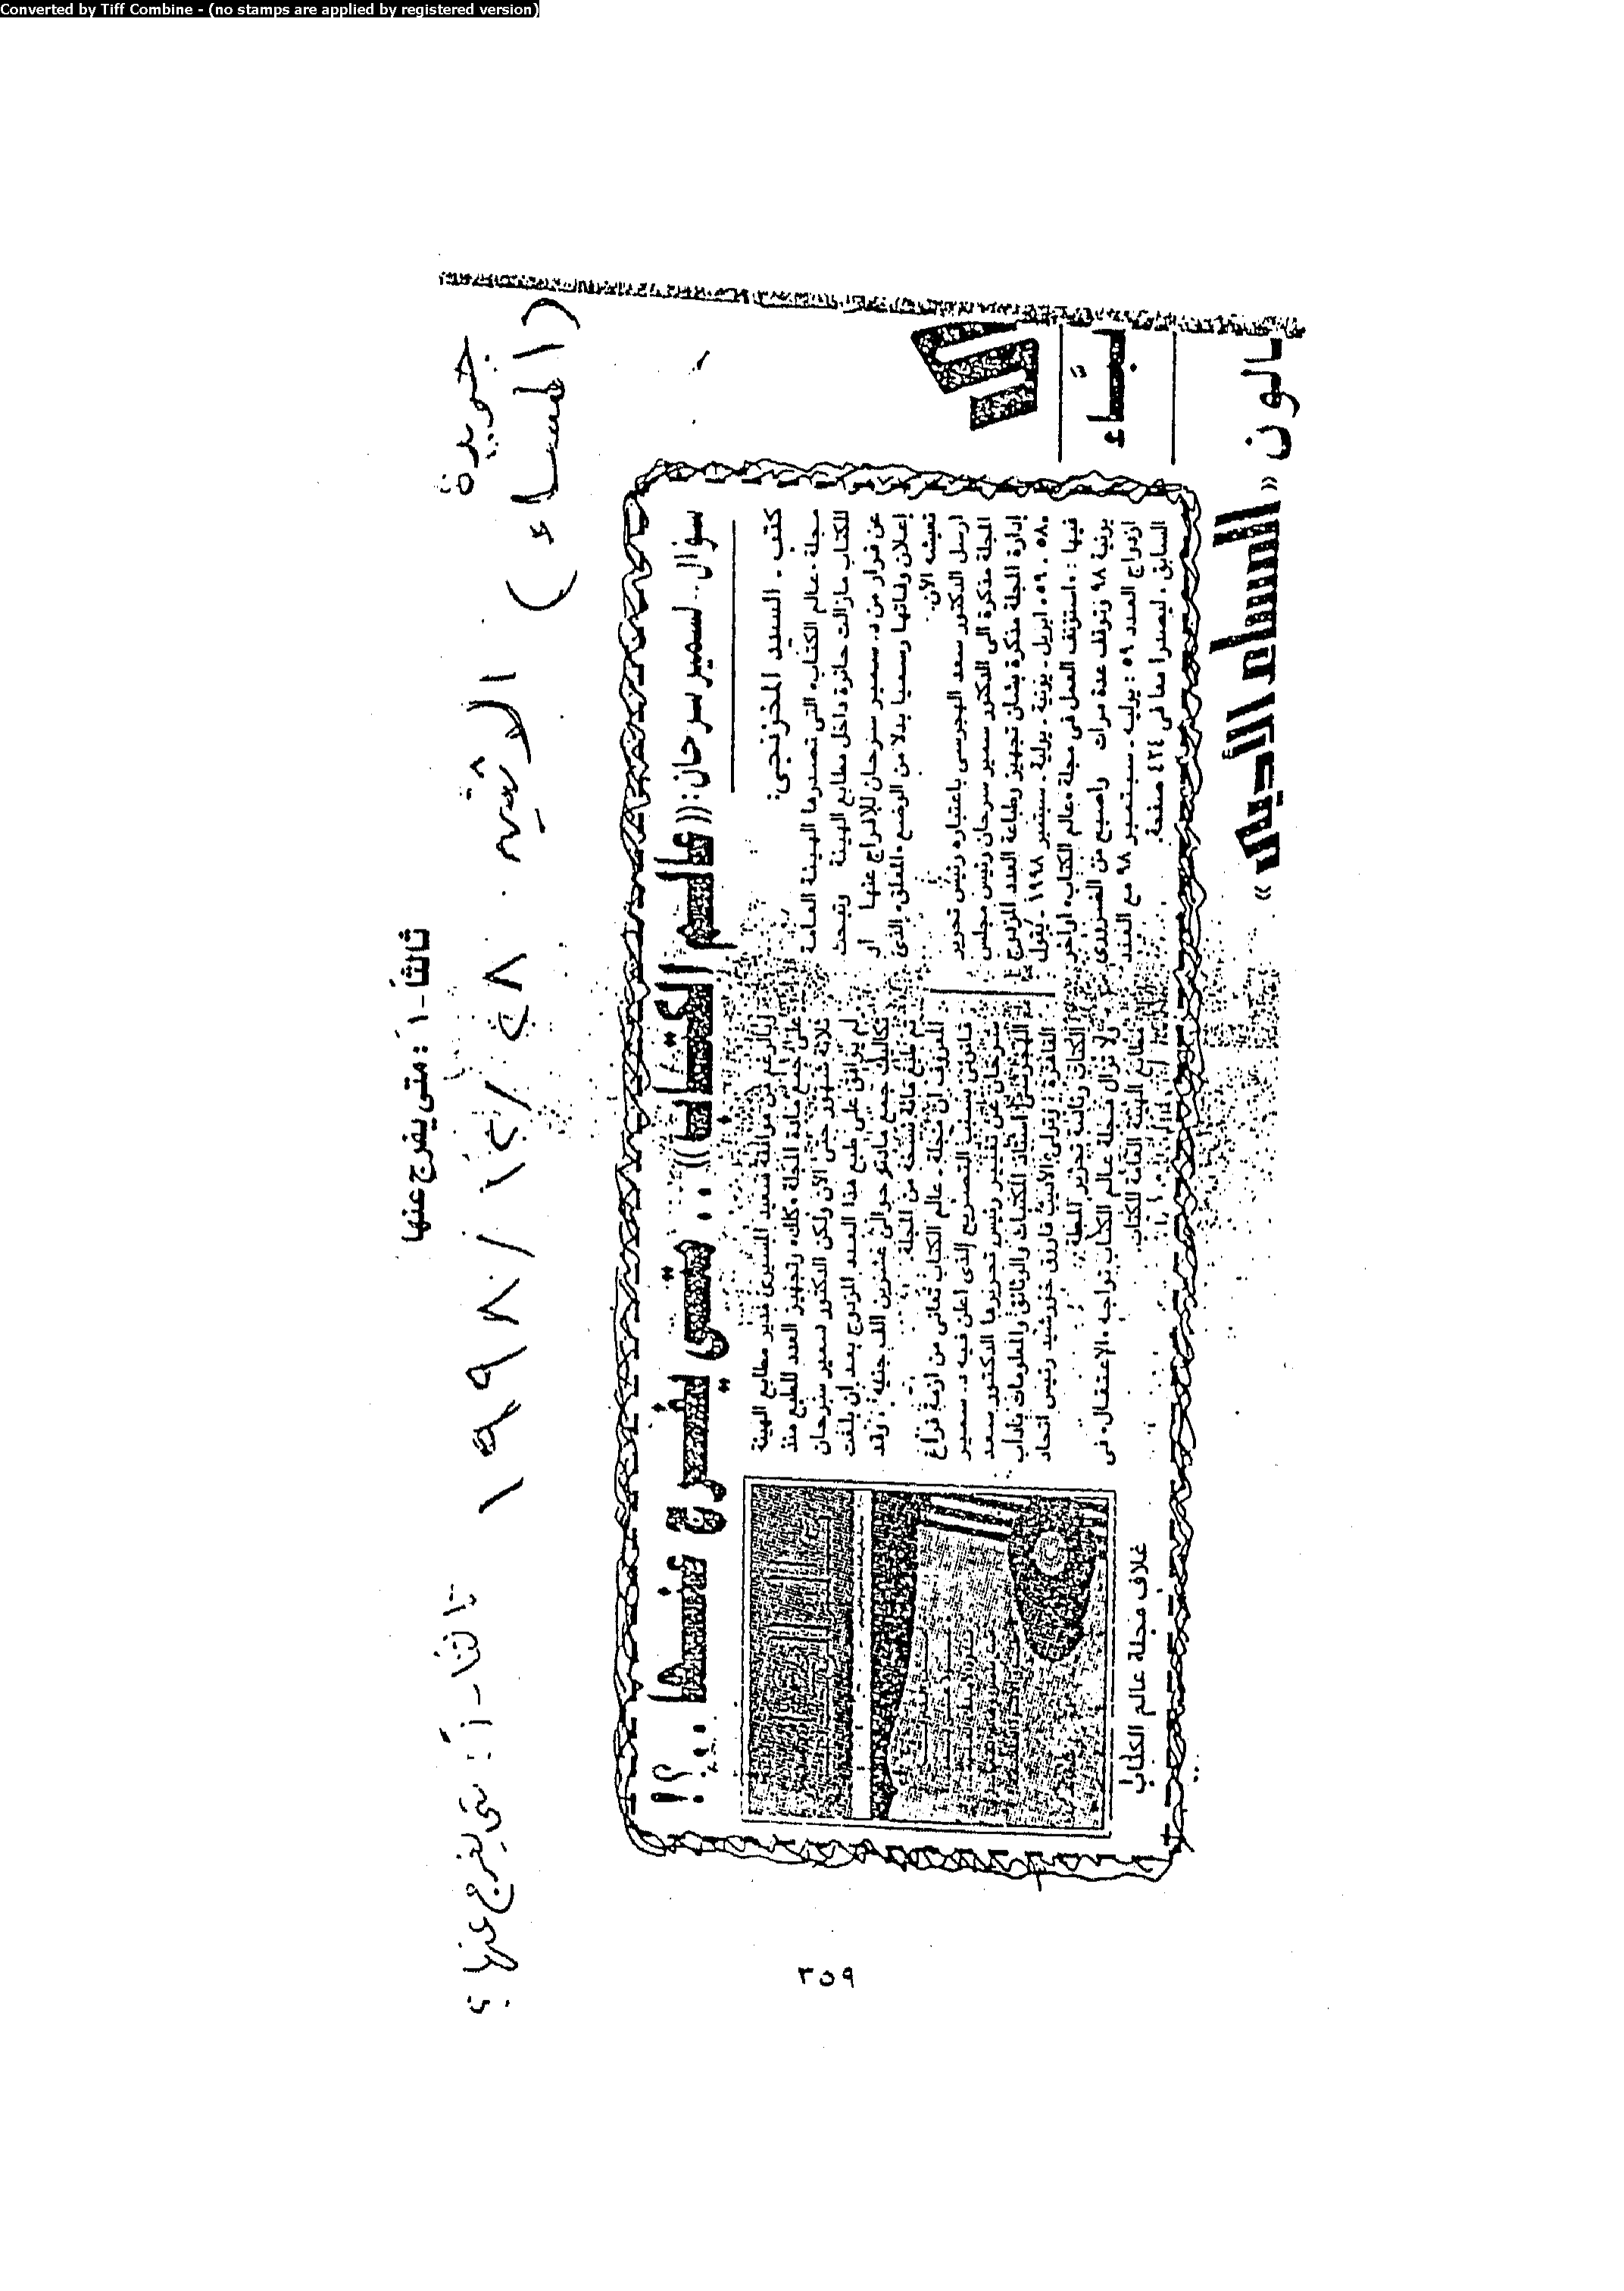 Converted by Tiff Combine - (no stamps are applied by registered version)
ثالثاً - أ : متى يفرج عنها
جريدة
(المساء)
الاثنين
١٩٩٨/١٢/٢٨
ثالثاً - أ : متى يفرج عنها ؟
سؤال.. لسمير سرحان :
((عالم الكتاب)) .. متى يفرج عنها ..؟!
كتب - السيد المخزنجى :
مجلة «عالم الكتاب» التى تصدرها الهيئة العامة
للكتاب مازالت حائرة داخل مطابع الهيئة وتبحث
عن قرار من د. سمير سرحان للإفراج عنها أو
إعلان وفاتها رسميا بدلا من الوضع «المعلق» الذى
تعيشه الآن.
أرسل الدكتور سعد الهجرسى باعتباره رئيس تحرير
المجلة مذكرة إلى الدكتور سمير سرحان رئيس مجلس
إدارة المجلة مذكرة بشأن تجهيز وطباعة العدد المزدوج
«٥٨ - ٥٩» ابريل - يونية - يولية - سبتمبر ١٩٩٨ - يقول
فيها : «استؤنف العمل فى مجلة «عالم الكتاب» أواخر
يونية ٩٨ وتوقف عدة مرات وأصبح من الضرورى
ازدواج العدد ٥٩ : يوليه - سبتمبر ٩٨ مع العدد
السابق، ليصدرا معا فى ٤٢٤ صفحة.
وبالرغم من موافقة سعيد المسيرى مدير مطابع الهيئة
على جمع مادة المجلة «كلك» وتجهيز العدد للطبع منذ
ثلاثة شهور حتى الآن ولكن الدكتور سمير سرحان
لم يوافق على طبع هذا العدد المزدوج بعد أن بلغت
تكاليف جمع مادته حوالى عشرين ألف جنيه. وقد
تم طبع مائة نسخة من المجلة.
المعروف أن مجلة - عالم الكتاب تعانى من أزمة فراغ
قانونى بسبب التصريح الذى أعلن فيه د. سمير
سرحان عن تغيير رئيس تحريرها الدكتور سعد
الهجرسى أستاذ المكتبات والوثائق والمعلومات بآداب
القاهرة وتولى الأديب فاروق خورشيد رئيس اتحاد
الكتاب رئاسة تحرير المجلة.
ولا تزال مجلة عالم الكتاب تواجه «الاعتقال» فى
مطابع الهيئة العامة للكتاب.
غلاف مجلة عالم الكتاب
«المساء الأدبى»
٣٥٩